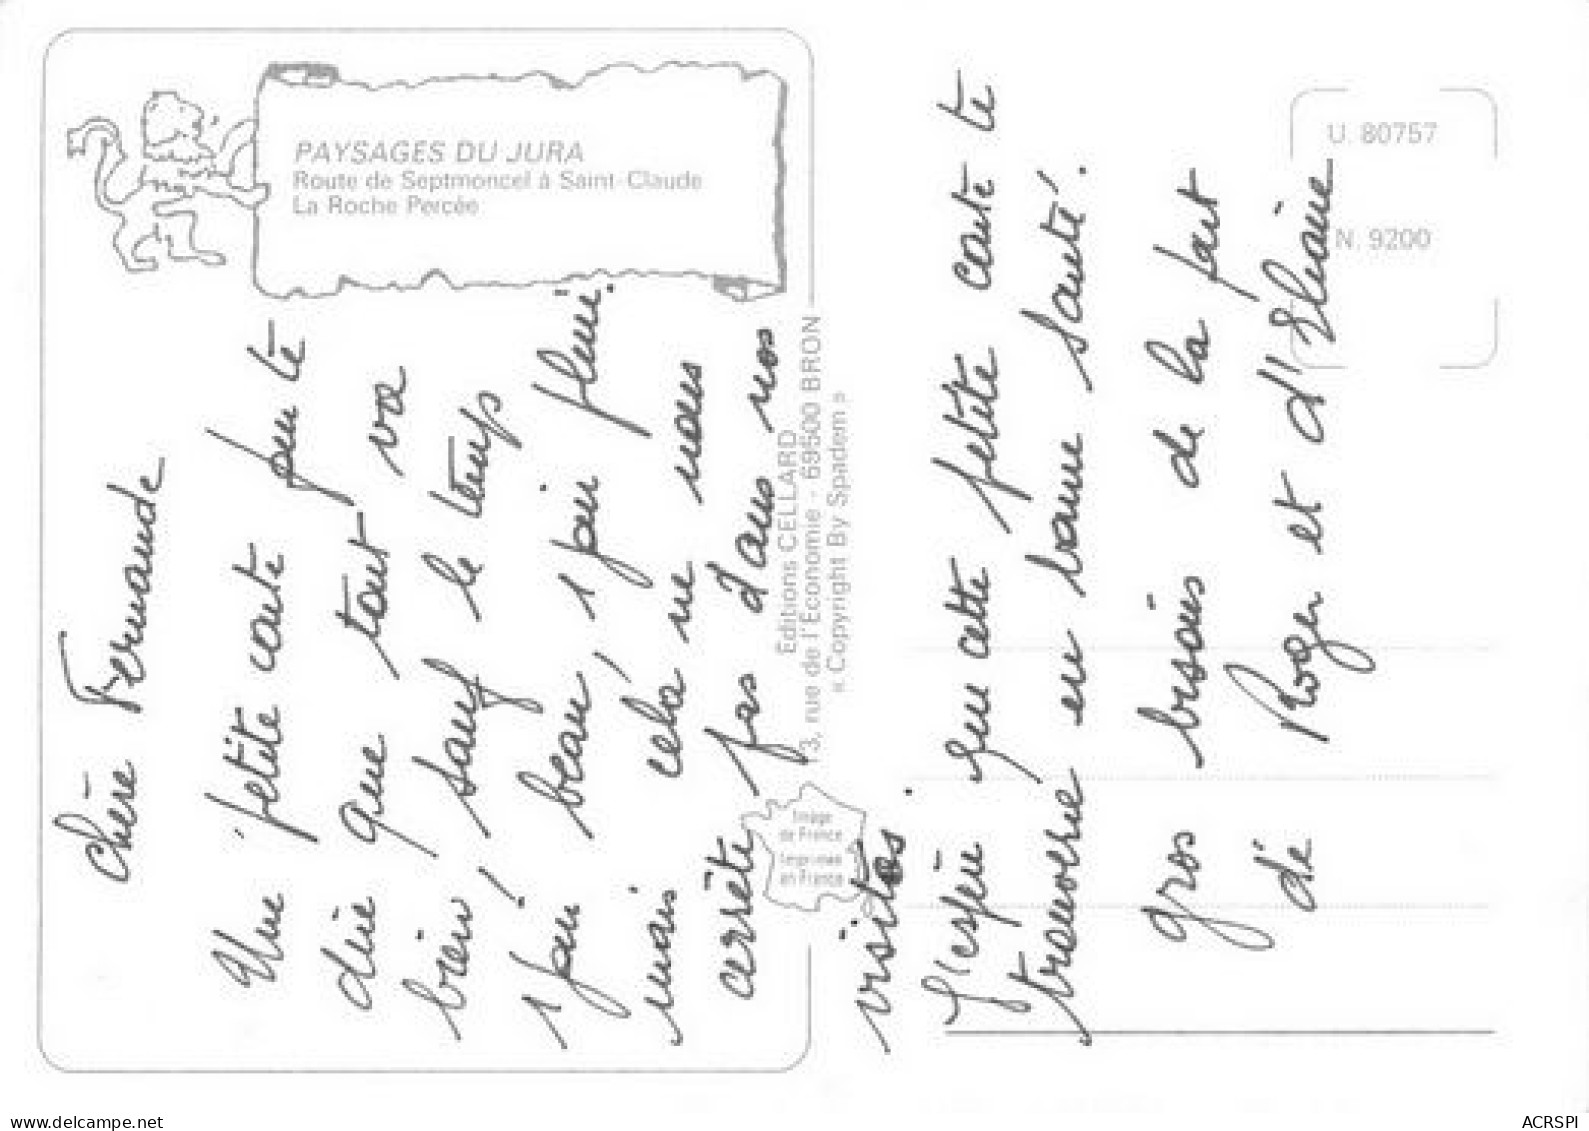 PAYSAGES DU JURA
Route de Septmoncel à Saint-Claude
La Roche Percée
U. 80757
N. 9200
Editions CELLARD
13, rue de l'Economie - 69500 BRON
« Copyright By Spadem »
Image
de France
Imprimée
en France
Chère Fernande
Une petite carte pour te
dire que tout va
bien, sauf le temps
1 jour beau, 1 jour pluie.
mais cela ne nous
arrête pas dans nos
visites.
J'espère que cette petite carte te
trouvera en bonne santé.
gros bisous de la part
de Roger et d'Eliane
www.delcampe.net
ACRSPI